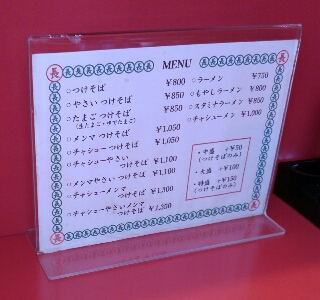 MENU
○つけそば ¥800
○やさい つけそば ¥850
○たまご つけそば ¥850
(生たまご・ゆでたまご)
○メンマ つけそば ¥1,050
○チャシューつけそば ¥1,050
○チャシューやさい
つけそば ¥1,100
○メンマやさい つけそば ¥1,100
○チャシューメンマ
つけそば ¥1,300
○チャシューやさいメンマ
つけそば ¥1,350
○ラーメン ¥750
○もやしラーメン ¥800
○スタミナラーメン ¥800
○チャシューメン ¥1,000
・中盛 +¥50
(つけそばのみ)
・大盛 +¥100
・特盛 +¥150
(つけそばのみ)